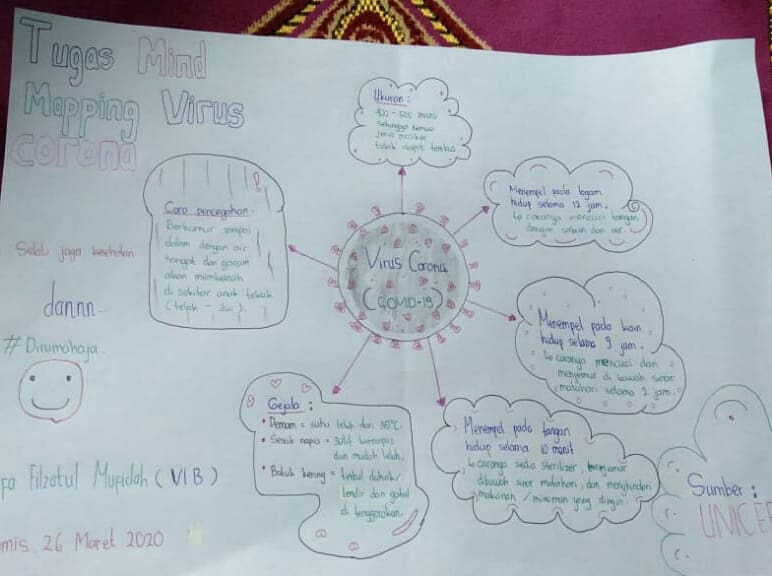 Tugas Mind
Mapping Virus
corona
Ukuran :
400 - 500 micro
sehingga semua
jenis masker
tidak dapat tembus
Cara pencegahan.
Berkumur sampai
dalam dengan air
hangat dan garam
akan membunuh
di sekitar anak tekak
Menempel pada logam
hidup selama 12 jam.
caranya mencuci tangan
dengan sabun dan air
Virus Corona
(COVID-19)
Selalu jaga kesehatan
dannn..
#Dirumahaja.
Menempel pada kain
hidup selama 9 jam.
caranya mencuci dan
menjemur di bawah sinar
matahari selama 2 jam.
Gejala :
• Demam = suhu lebih dari 38°C.
• Sesak napas = sulit bernapas
dan mudah lelah.
• Batuk kering = timbul dahak/
lendir dan gatal
di tenggorokan.
Menempel pada tangan
hidup selama 10 menit
caranya sedia sterilizer, menjemur
dibawah sinar matahari, dan menghindari
makanan / minuman yang dingin.
Filzatul Mufidah (VI B)
mis, 26 Maret 2020
Sumber :
UNICEF